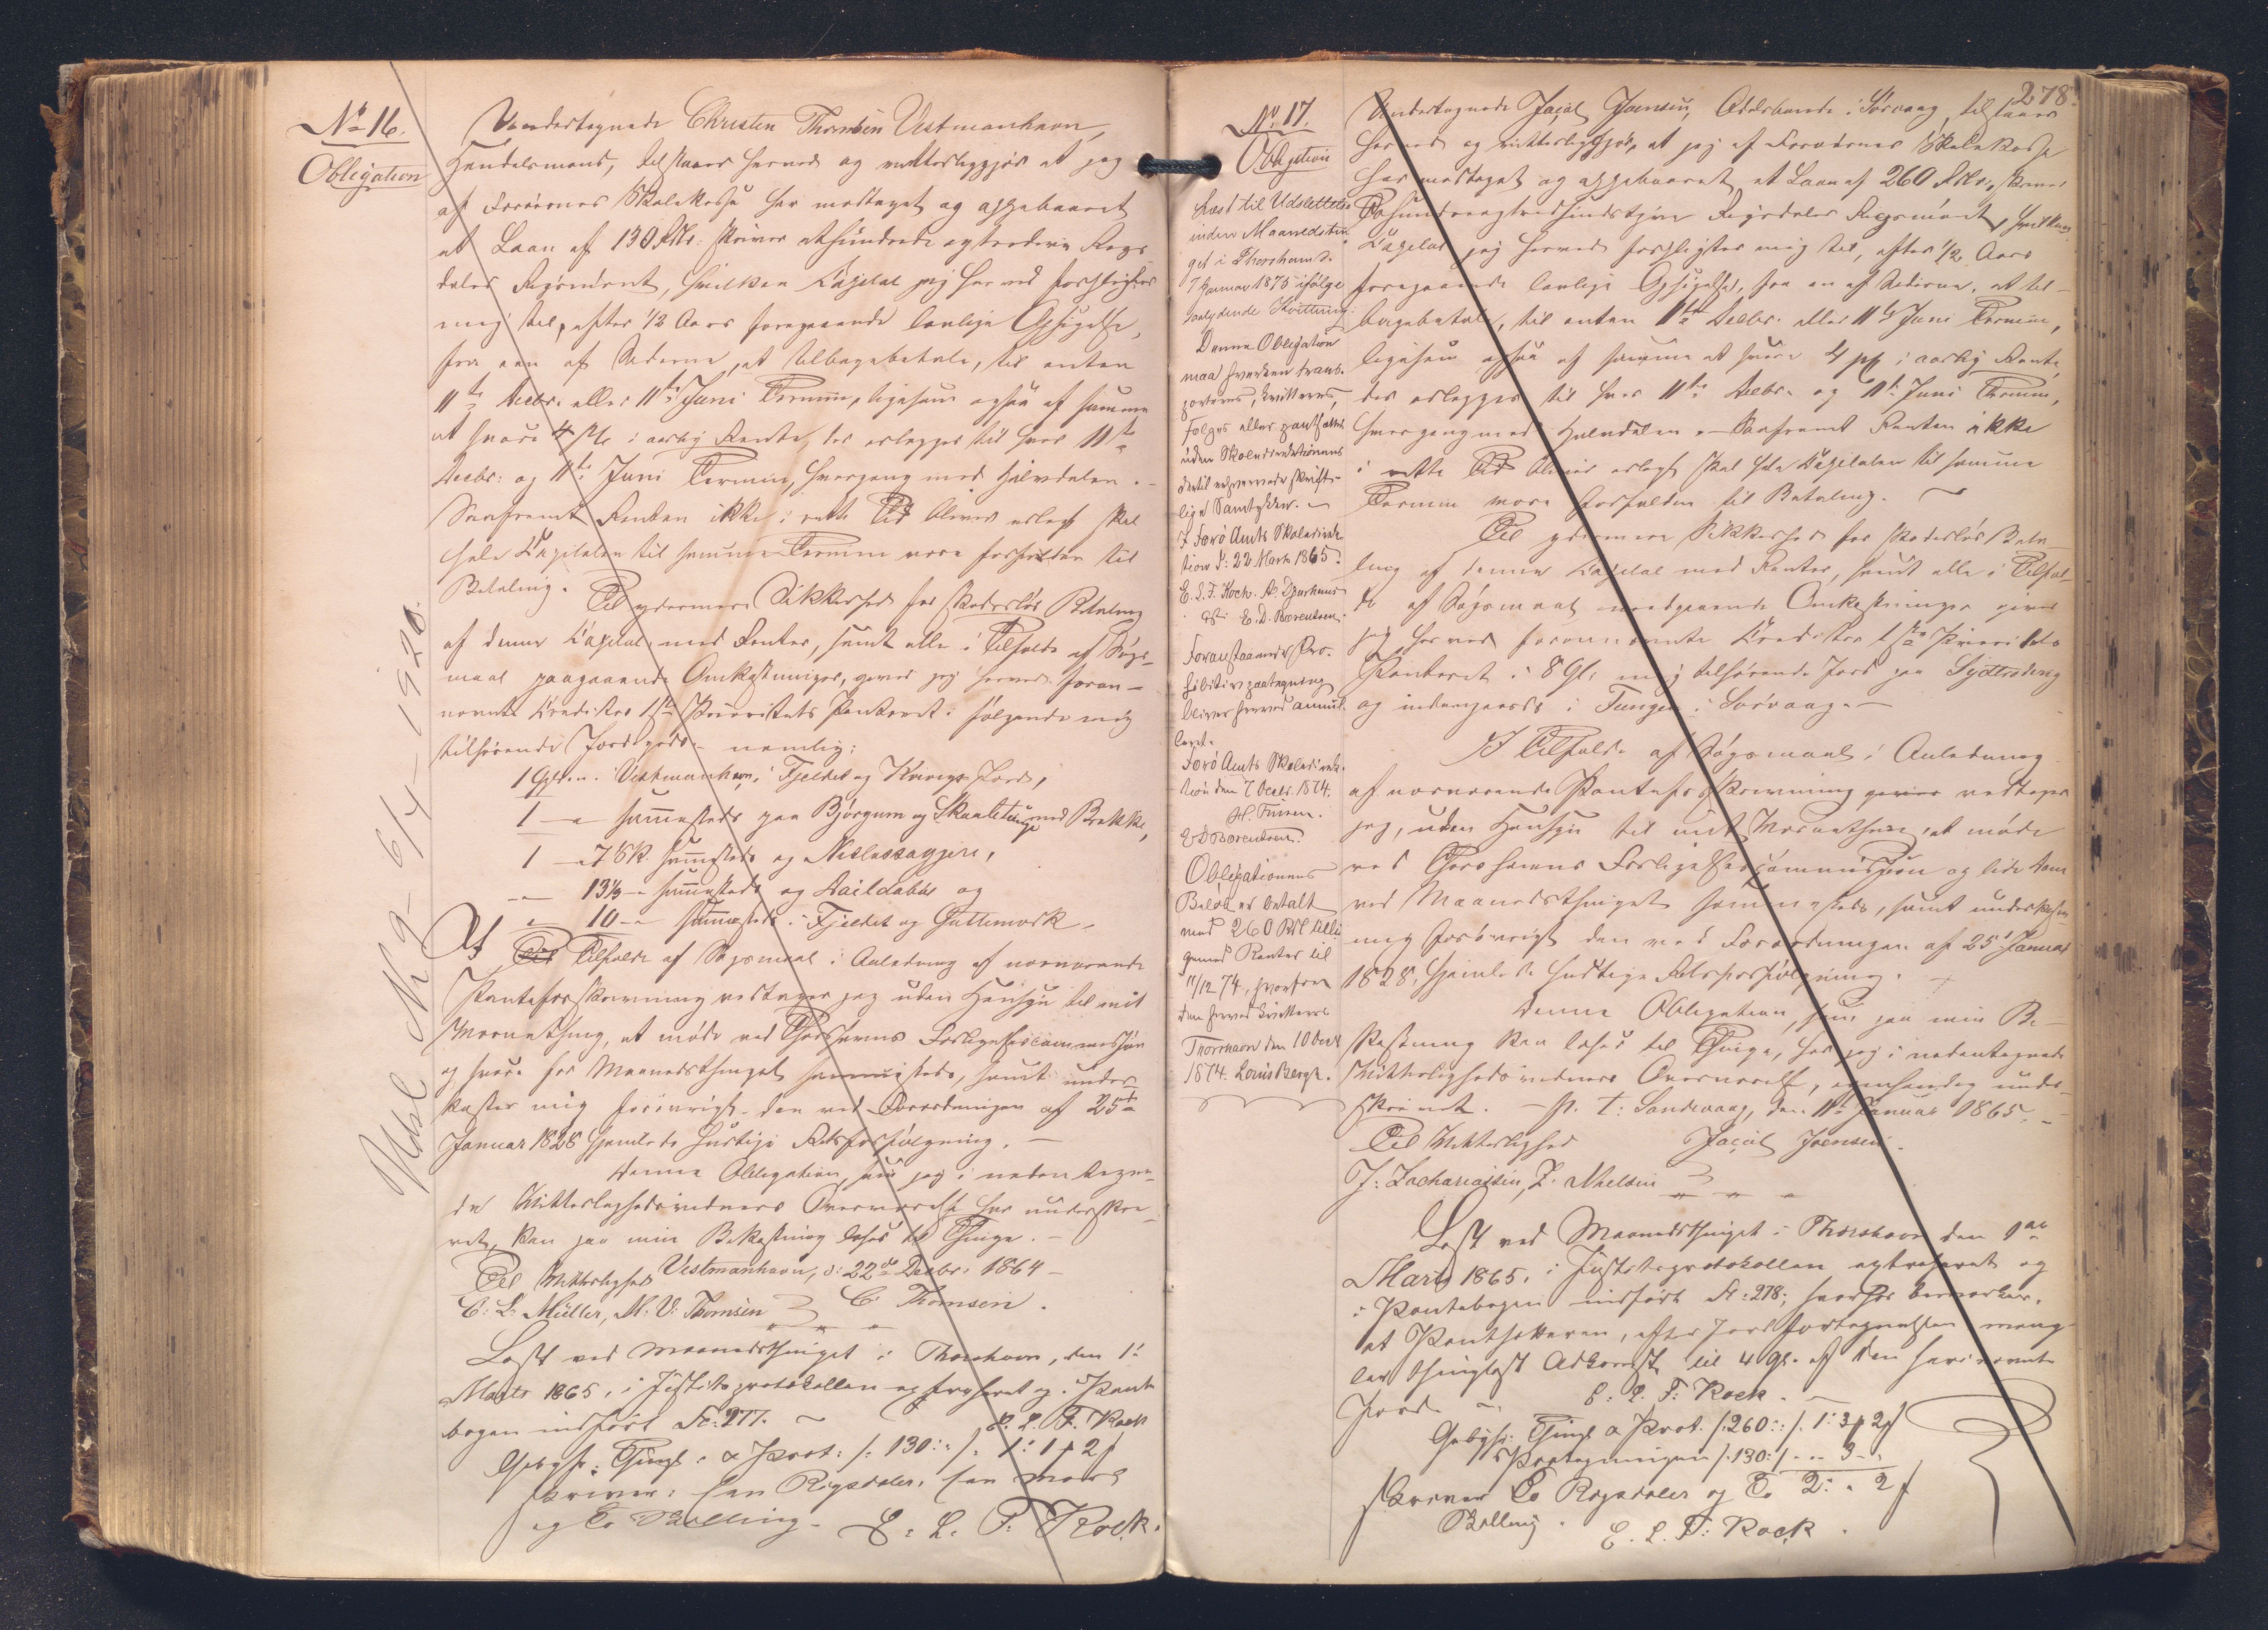 No 16.
Obligation
Undertegnede Christen Thomsen Vestmanhavn,
Handelsmand, tilstaaer herved og vitterliggjør at jeg
af Færøernes Skolekasse har modtaget og oppebaaret
et Laan af 130 Rdlr. skriver ethundrede og tredive Rigs-
daler Rigsmønt, hvilken Kapital jeg herved forpligter
mig til, efter 1/2 Aars foregaaende lovlige Opsigelse,
fra een af Siderne, at tilbagebetale, til enten
11te Decbr. eller 11te Juni Termin, ligesom ogsaa af samme
at svare 4 pCt. i aarlig Rente, der erlægges til hver 11te
Decbr. og 11te Juni Termin, hvergang med Halvdelen. -
Saafremt Renten ikke i rette Tid bliver erlagt skal
hele Kapitalen til samme Termin være forfalden til
Betaling. Til ydermere Sikkerhed for skadesløs Betaling
af denne Kapital med Renter, samt alle i Tilfælde af Søgs-
maal paagaaende Omkostninger, giver jeg herved foran-
nævnte Creditor 1ste Prioritets Panteret i følgende mig
tilhørende Jordegods nemlig:
1 Gylden i Vestmanhavn, i Fjeldet og Kvivigs Jord,
1 — sammesteds paa Bjørgum og Skaaletunge med Brekke,
1 — 7 Sk. sammesteds og Niclassagjere,
— 13 1/3 — sammesteds og Haildabø og
— 10 — sammesteds i Fjeldet og Gattemork.
I Tilfælde af Søgsmaal i Anledning af nærværende
Panteforskrivning vedtager jeg uden Hensyn til mit
Værnething, at møde ved Thorshavns Forligelsescommission
og svare for Maanedsthinget sammesteds, samt under-
kaster mig forøvrigt den ved Forordningen af 25de
Januar 1828 hjemlede hurtige Retsforfølgning. —
Denne Obligation, som jeg i nedentegne-
de Vitterlighedsvidners Overværelse har underskre-
vet, kan paa min Bekostning læses til Thinge. -
Vestmanhavn, d: 22de Decbr. 1864 -
Til Vitterlighed
C. L. Müller, M. V. Thomsen C. Thomsen.
Læst ved Maanedsthinget i Thorshavn, den 1ste
Marts 1865, i Justitsprotokollen extraheret og i Pante-
bogen indført Fol. 277. E. L. F. Kock
Gebyhr: Thingl. & Prot. /: 130 :/ 1: 1 β 2 β
skriver: een Rigsdaler, een Mark
og to Skilling. E. L. F. Kock.
Udsl. N 9 - 6/4 - 1920.
278.
No. 17.
Obligation
Læst til Udslettelse
inden Maanedsthin-
get i Thorshavn d.
7 Januar 1875 ifølge
saalydende Kvittering:
Denne Obligation
maa hverken trans-
porteres, kvitteres,
følges eller pantsættes
uden Skoledirektionens
dertil erhvervede skrift-
lige Samtykke. -
I Færø Amts Skoledirek-
tion d: 22 Marts 1865.
E. L. F. Kock. A. Djurhuus
E. D. Bærentsen.
Foranstaaende Pro-
hibitivpaategning
bliver herved annul-
leret.
Færø Amts Skoledirek-
tion den 7 Decbr. 1874.
H. Finsen.
E D Bærentsen.
Obligationens
Beløb er betalt
med 260 Rdl tilli-
gemed Renter til
11/12 74, hvorfor
den herved kvitteres
Thorshavn den 10 Decbr
1874. Louis Bergh.
Undertegnede Jacob Joensen, Odelsbonde i Sørvaag, tilstaaer
herved og vitterliggjør, at jeg af Færøernes Skolekasse
har modtaget og oppebaaret et Laan af 260 Rdlr., skriver
Tohundredeogtredsindstyve Rigsdaler Rigsmønt, hvilken
Kapital jeg herved forpligter mig til, efter 1/2 Aars
foregaaende lovlige Opsigelse, fra en af Siderne, at til-
bagebetale, til enten 11te Decbr. eller 11te Juni Termin,
ligesom ogsaa af samme at svare 4 pCt. i aarlig Rente,
der erlægges til hver 11te Decbr. og 11te Juni Termin,
hvergang med Halvdelen. - Saafremt Renten ikke
i rette Tid bliver erlagt skal hele Kapitalen til samme
Termin være forfalden til Betaling. —
Til ydermere Sikkerhed for skadesløs Beta-
ling af denne Kapital med Renter, samt alle i Tilfæl-
de af Søgsmaal medgaaende Omkostninger giver
jeg herved forannævnte Creditor 1ste Prioritets
Panteret i 8 Gl. mig tilhørende Jord paa Sydtroding
og indengjærds i Tungen i Sørvaag. —
I Tilfælde af Søgsmaal i Anledning
af nærværende Panteforskrivning vedtager
jeg, uden Hensyn til mit Værnething, at møde
ved Thorshavns Forligelsescommission og lide Dom
ved Maanedsthinget sammesteds, samt underkaster
mig forøvrigt den ved Forordningen af 25 Januar
1828 hjemlede hurtige Retsforfølgning.
Denne Obligation, som paa min Be-
kostning kan læses til Thinge, har jeg i nedentegnede
Vitterlighedsvidners Overværelse, egenhændig under-
skrevet. — p. t. Sandevaag, den 11te Januar 1865. -
Til Vitterlighed Jacob Joensen.
J. Zachariasen, Z. Nielsen
Læst ved Maanedsthinget i Thorshavn den 1ste
Marts 1865, i Justitsprotokollen extraheret og
i Pantebogen indført Fol. 278; hvorhos bemærkes,
at Pantsætteren, efter Jordfortegnelsen mang-
ler thinglæst Adkomst til 4 Gl. af den heri nævnte
Jord. — E. L. F. Kock. —
Gebyhr: Thingl. & Prot. /: 260 :/ 1: 3 β 2 β
Paategningen /: 130 :/ - - 3 - -
skriver To Rigsdaler og To 2: " 2 β
Skilling. E. L. F. Kock.